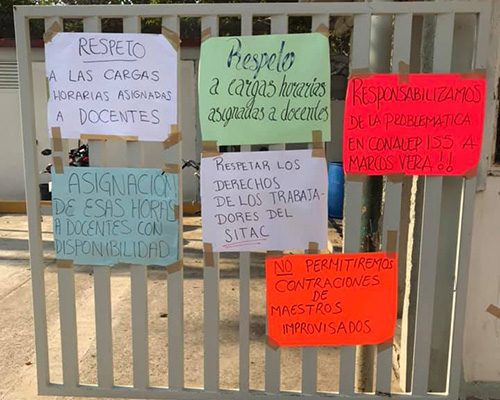 RESPETO
A LAS CARGAS
HORARIAS ASIGNADAS
A DOCENTES
Respeto
a cargas horarias
asignadas a docentes
RESPONSABILIZAMOS
DE LA PROBLEMÁTICA
EN CONALEP 155 A
MARCOS VERA!!
ASIGNACIÓN
DE ESAS HORAS
A DOCENTES CON
DISPONIBILIDAD
RESPETAR LOS
DERECHOS
DE LOS TRABAJA-
DORES DEL
SITAC
NO PERMITIREMOS
CONTRACIONES
DE
MAESTROS
IMPROVISADOS